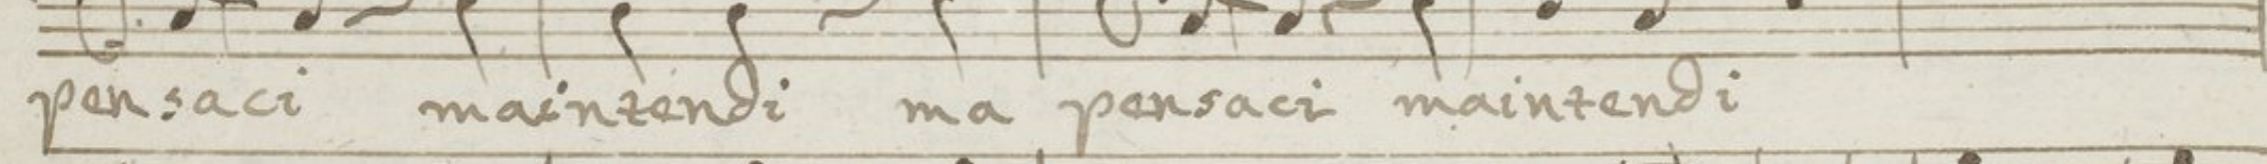 pensaci maintendi ma pensaci maintendi